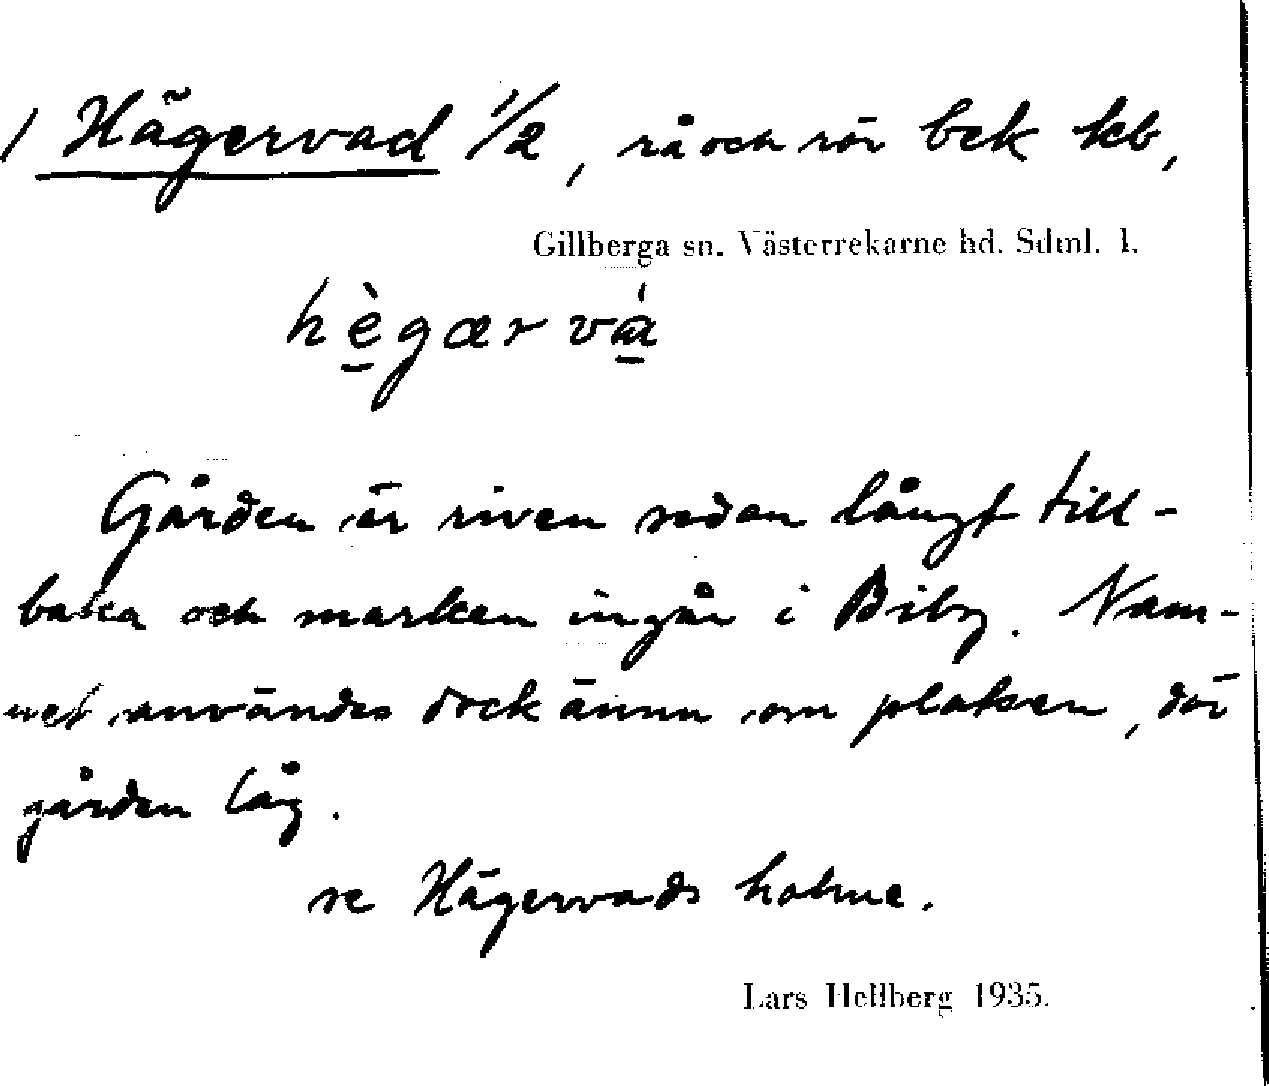 / Hägervad 1/2, rå och rör bck kb,
Gillberga sn. Västerrekarne hd. Sdml. l.
hègær vá
Gården är riven sedan långt till-
baka och marken ingår i Biby. Nam-
net användes dock ännu om platsen, där
gården låg.
se Hägervads holme.
Lars Hellberg 1935.